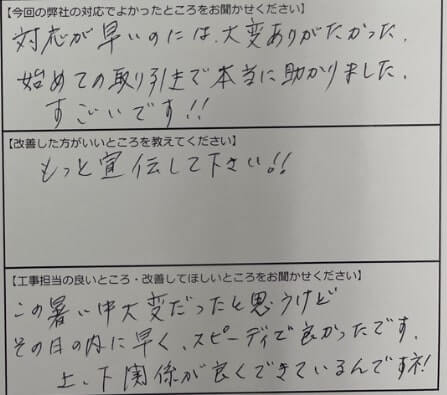 【今回の弊社の対応でよかったところをお聞かせください】
対応が早いのには、大変ありがたかった、
始めての取り引きで本当に助かりました、
すごいです!!
【改善した方がいいところを教えてください】
もっと宣伝して下さい!!
【工事担当の良いところ・改善してほしいところをお聞かせください】
この暑い中大変だったと思うけど
その日の内に早く、スピーディで良かったです、
上、下関係が良くできているんですネ!